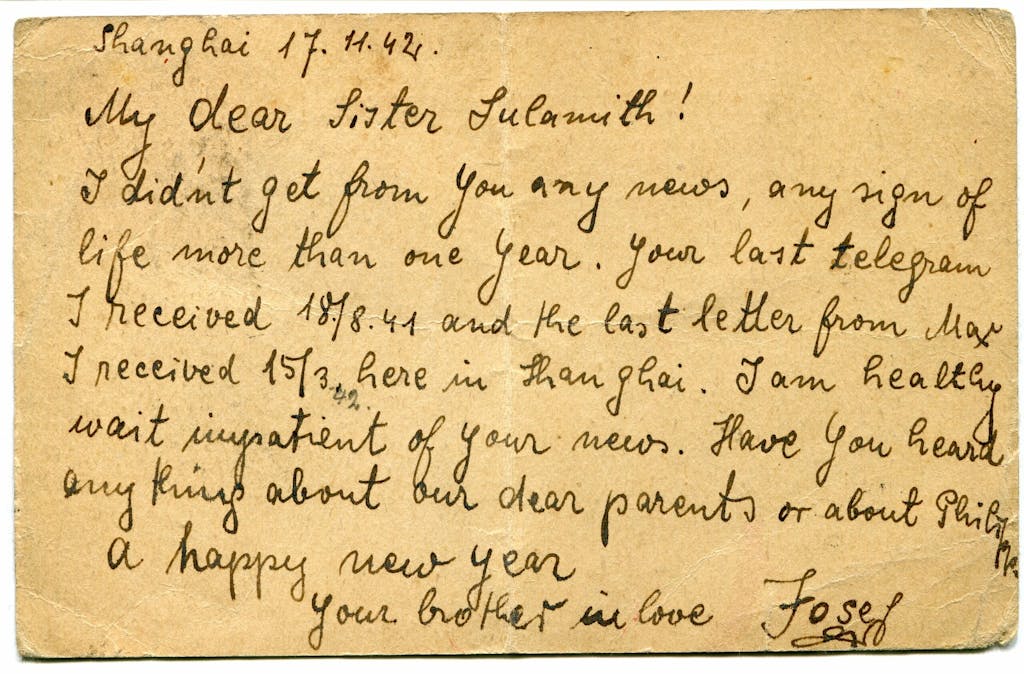 Shanghai 17.11.42.
My dear Sister Sulamith!
I didn't get from you any news, any sign of
life more than one Year. Your last telegram
I received 18/8.41 and the last letter from Max
I received 15/3.42. here in Shanghai. I am healthy
wait impatient of your news. Have You heard
anything about our dear parents or about
A happy new year
Your brother in love Josef